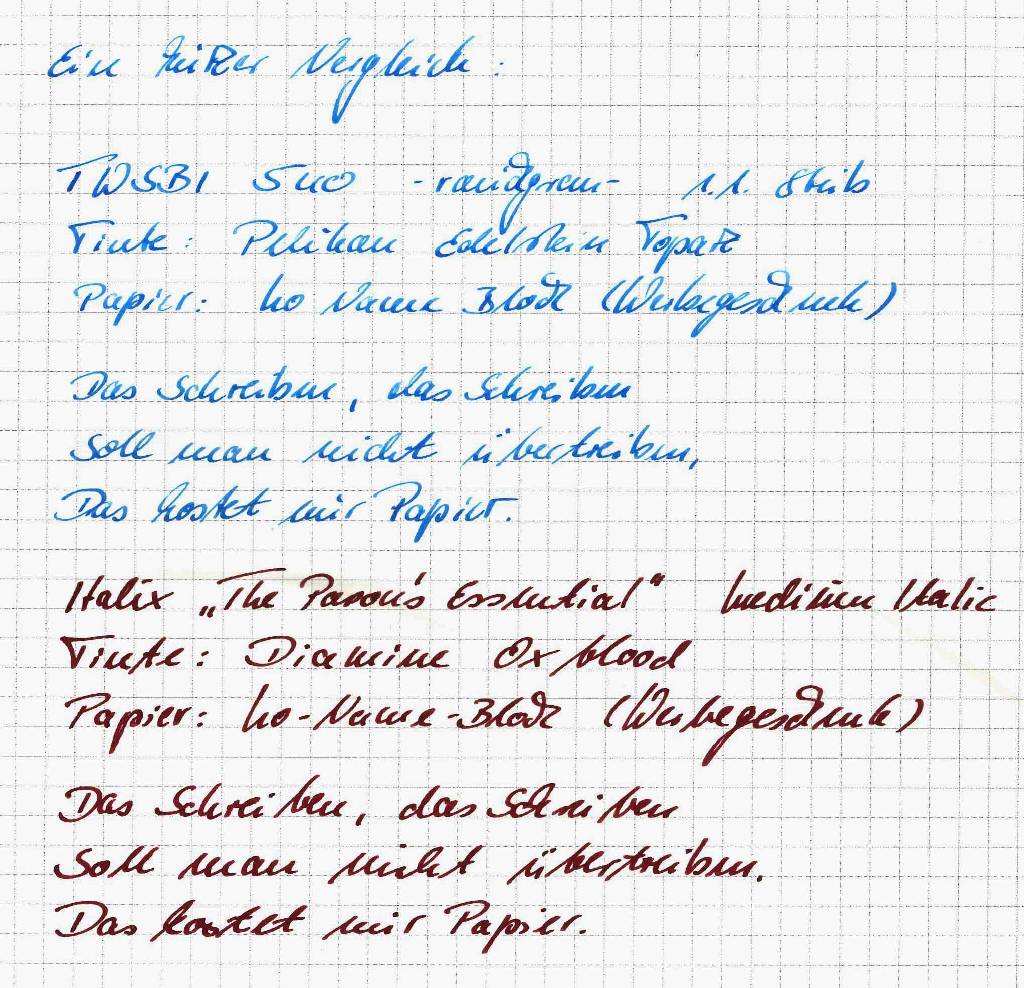 Ein kurzer Vergleich:
TWSBI 540 - 1.1. Stub
Tinte: Pelikan Edelstein Topaz
Papier: No Name Block (Werbegeschenk)
Das Schreiben, das Schreiben
Soll man nicht übertreiben,
Das kostet mir Papier.
Italix „The Parson's Essential" medium Italic
Tinte: Diamine Oxblood
Papier: No-Name-Block (Werbegeschenk)
Das Schreiben, das Schreiben
Soll man nicht übertreiben.
Das kostet mir Papier.